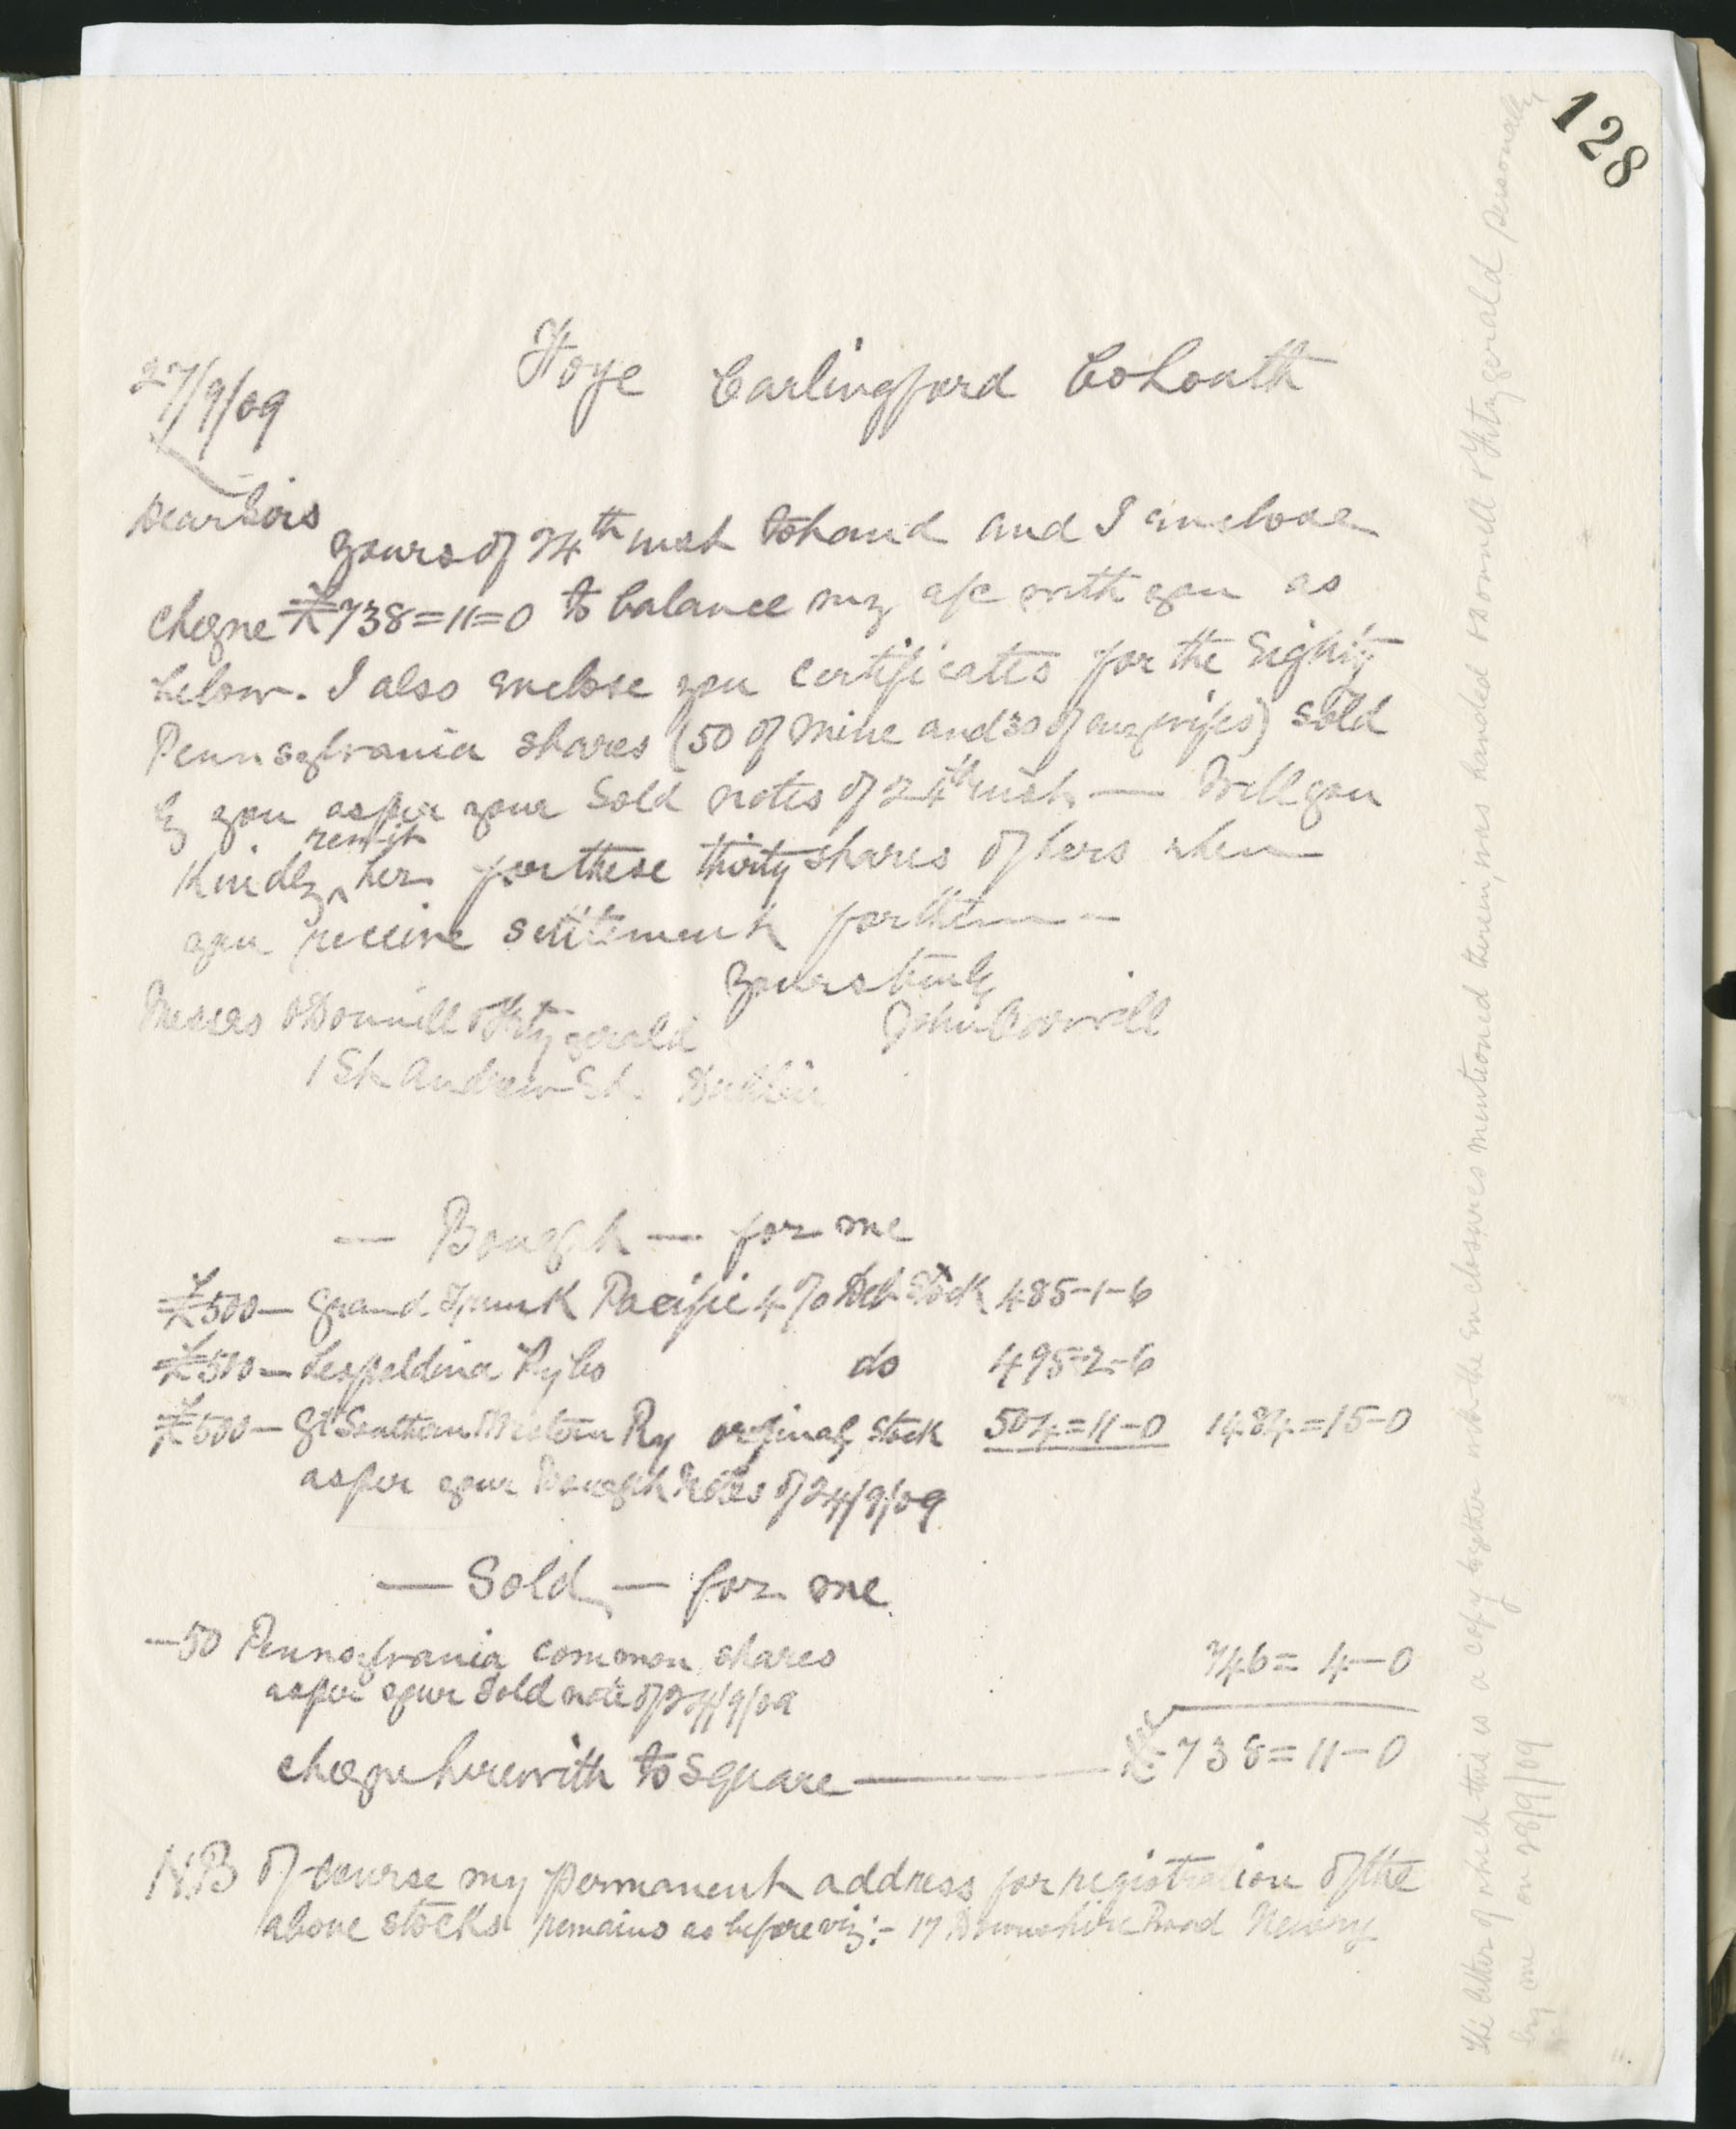 128
27/9/09
Foye Carlingford Co Louth
Dear Sirs
yours of 24th inst to hand and I enclose
cheque £738=11=0 to balance my a/c with you as
below. I also enclose you certificates for the Eighty
Pennsylvania shares (50 of mine and 30 of my wifes) sold
by you as per your Sold notes of 24th inst — Will you
kindly remit her for these thirty shares of hers when
you receive settlement for them —
yours truly
John
Messrs ODonnell & Fitzgerald
1 St Andrew St. Dublin
— Bought — for me
£500 — Grand Trunk Pacific 4% Deb Stock 485-1-6
£500 — Leopoldina Ry Co do 495-2-6
£500 — Gt Southern & Western Ry original stock 504=11-0 1484=15-0
as per your Bought Notes of 24/9/09
— Sold — for me
— 50 Pennsylvania common shares 746=4-0
as per your Sold note of 24/9/09
cheque herewith to square — £738=11-0
N.B of course my permanent address for registration of the
above stocks remains as before viz:- 17 Downshire Road Newry
The letter of which this is a copy together with the enclosures mentioned therein, was handed ODonnell & Fitzgerald personally
by me on 28/9/09